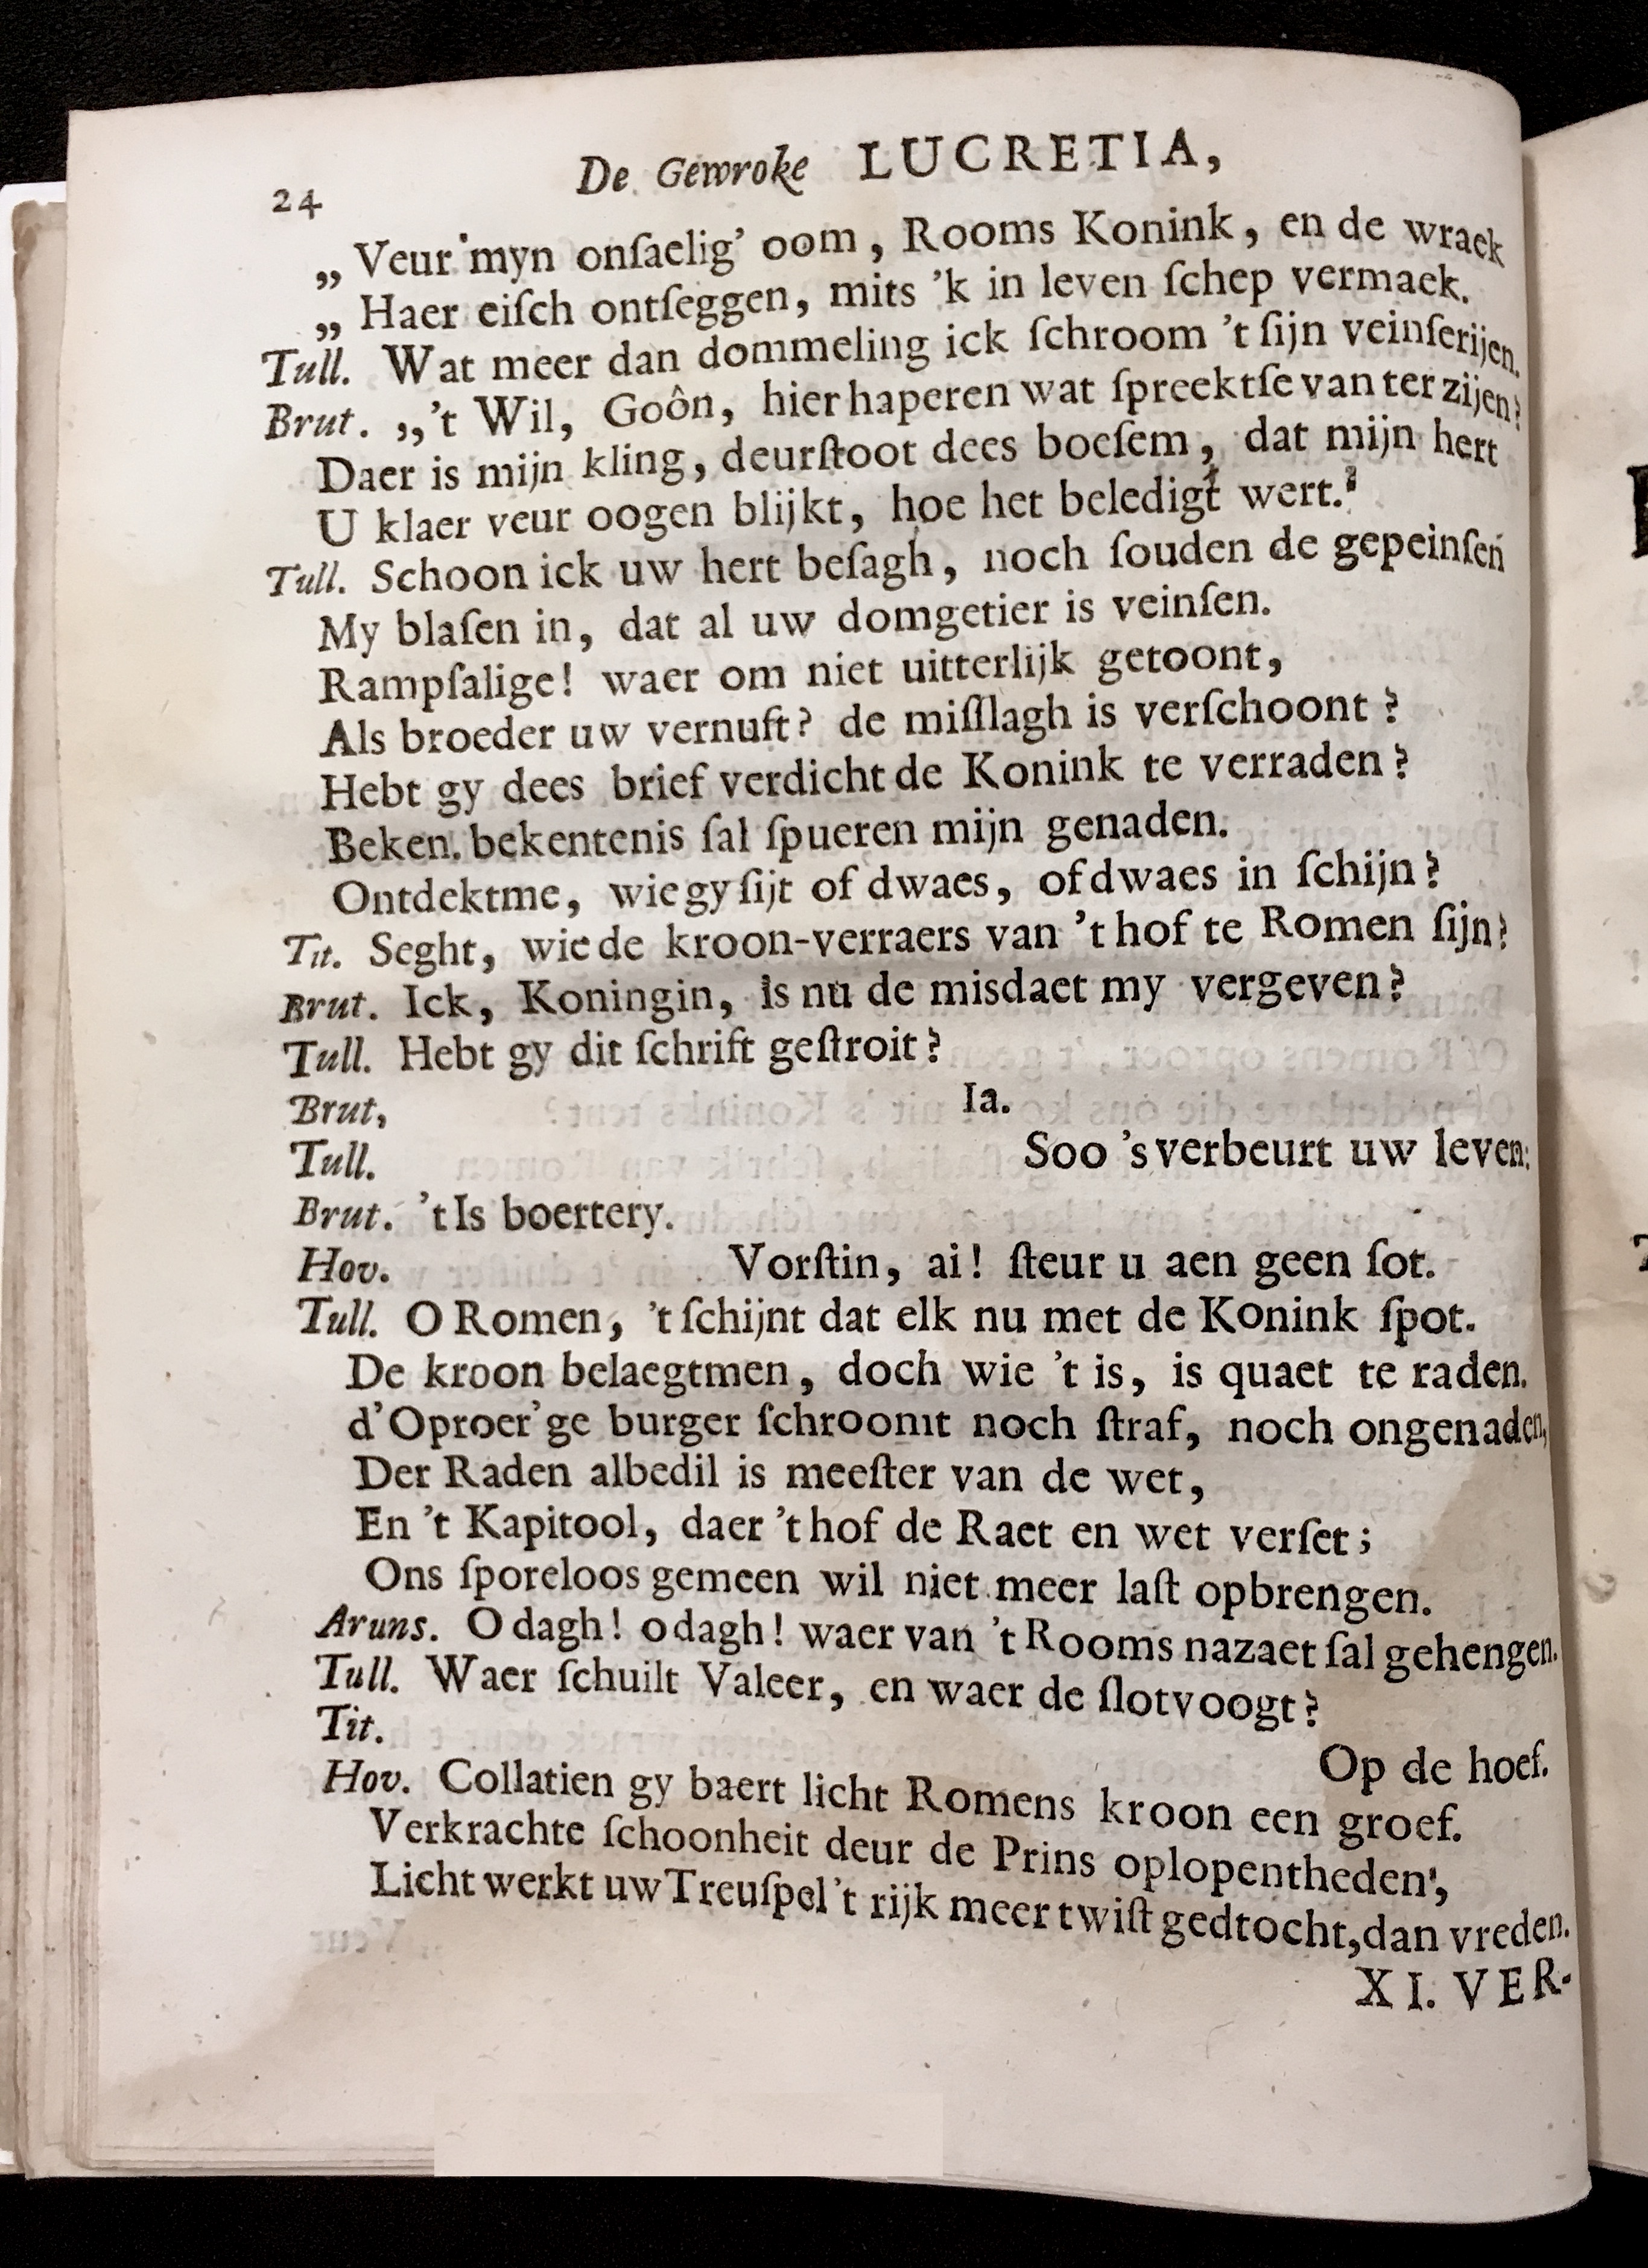 24 De Gewroke LUCRETIA,
„ Veur myn onſaelig’ oom, Rooms Konink, en de wraek
„ Haer eiſch ontſeggen, mits ’k in leven ſchep vermaek.
Tull. Wat meer dan dommeling ick ſchroom ’t ſijn veinſerijen.
Brut. „’t Wil, Goôn, hier haperen wat ſpreektſe van ter zijen?
Daer is mijn kling, deurſtoot dees boeſem, dat mijn hert
U klaer veur oogen blijkt, hoe het beledigt wert.
Tull. Schoon ick uw hert beſagh, noch ſouden de gepeinſen
My blaſen in, dat al uw domgetier is veinſen.
Rampſalige! waer om niet uitterlijk getoont,
Als broeder uw vernuft? de miſſlagh is verſchoont?
Hebt gy dees brief verdicht de Konink te verraden?
Beken. bekentenis ſal ſpueren mijn genaden.
Ontdektme, wie gy ſijt of dwaes, of dwaes in ſchijn?
Tit. Seght, wie de kroon-verraers van ’t hof te Romen ſijn?
Brut. Ick, Koningin, is nu de misdaet my vergeven?
Tull. Hebt gy dit ſchrift geſtroit?
Brut, Ia.
Tull. Soo ’s verbeurt uw leven:
Brut. ’t Is boertery.
Hov. Vorſtin, ai! ſteur u aen geen ſot.
Tull. O Romen, ’t ſchijnt dat elk nu met de Konink ſpot.
De kroon belaegtmen, doch wie ’t is, is quaet te raden.
d’Oproer’ge burger ſchroomt noch ſtraf, noch ongenaden,
Der Raden albedil is meeſter van de wet,
En ’t Kapitool, daer ’t hof de Raet en wet verſet;
Ons ſporeloos gemeen wil niet meer laſt opbrengen.
Aruns. O dagh! o dagh! waer van ’t Rooms nazaet ſal gehengen.
Tull. Waer ſchuilt Valeer, en waer de ſlotvoogt?
Tit. Op de hoef.
Hov. Collatien gy baert licht Romens kroon een groef.
Verkrachte ſchoonheit deur de Prins oplopentheden,
Licht werkt uw Treuſpel ’t rijk meer twiſt gedtocht, dan vreden.
XI. VER-